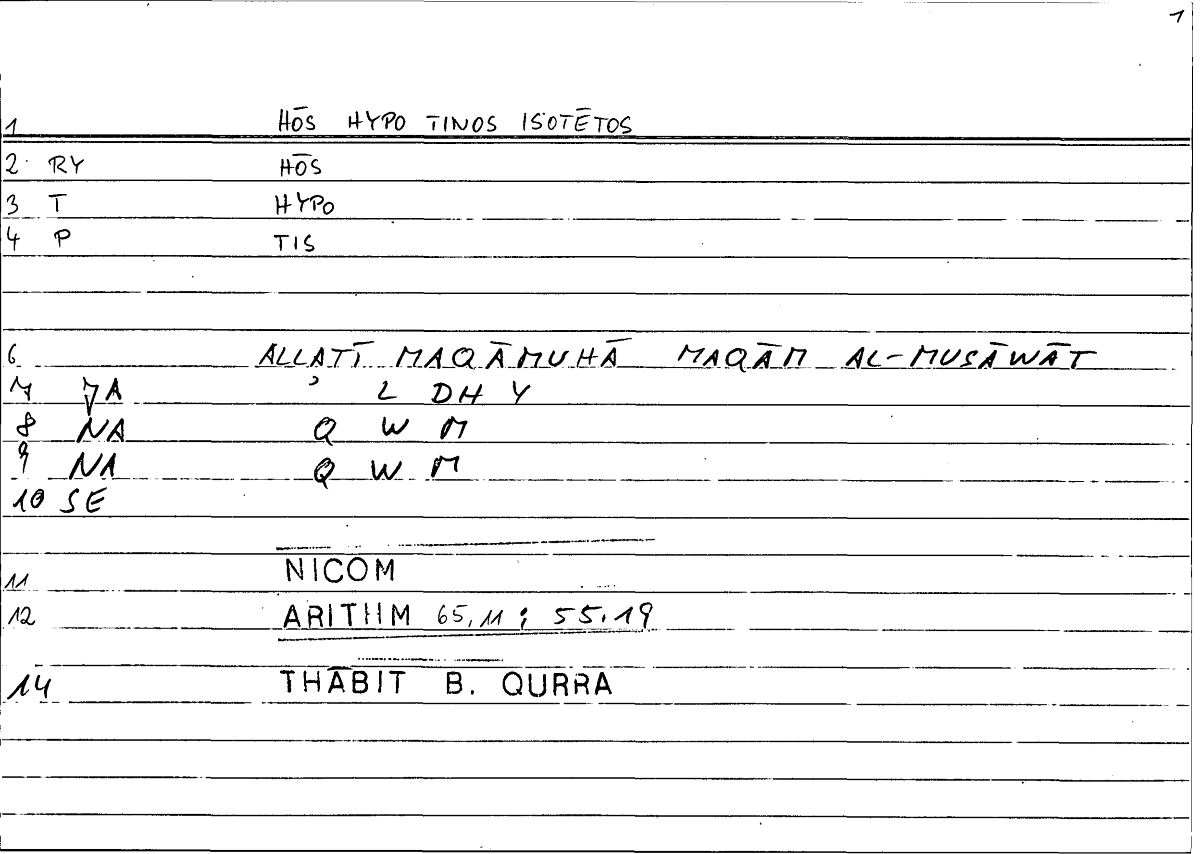 1
1 HŌS HYPO TINOS ISOTĒTOS
2 RY HŌS
3 T HYPO
4 P TIS
6 ALLATĪ MAQĀMUHĀ MAQĀM AL-MUSĀWĀT
7 JA ʾ L DH Y
8 NA Q W M
9 NA Q W M
10 SE
11 NICOM
12 ARITHM 65,11 ; 55.19
14 THĀBIT B. QURRA